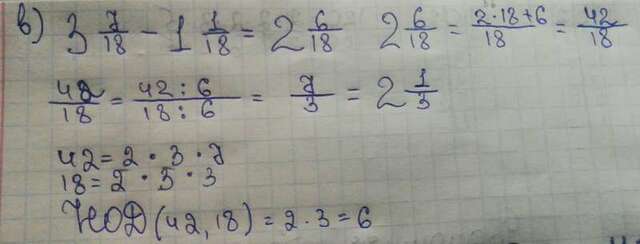 в) 3 7/18 - 1 1/18 = 2 6/18   2 6/18 = (2·18+6)/18 = 42/18
42/18 = (42:6)/(18:6) = 7/3 = 2 1/3
42 = 2 · 3 · 7
18 = 2 · 3 · 3
НОД (42, 18) = 2 · 3 = 6